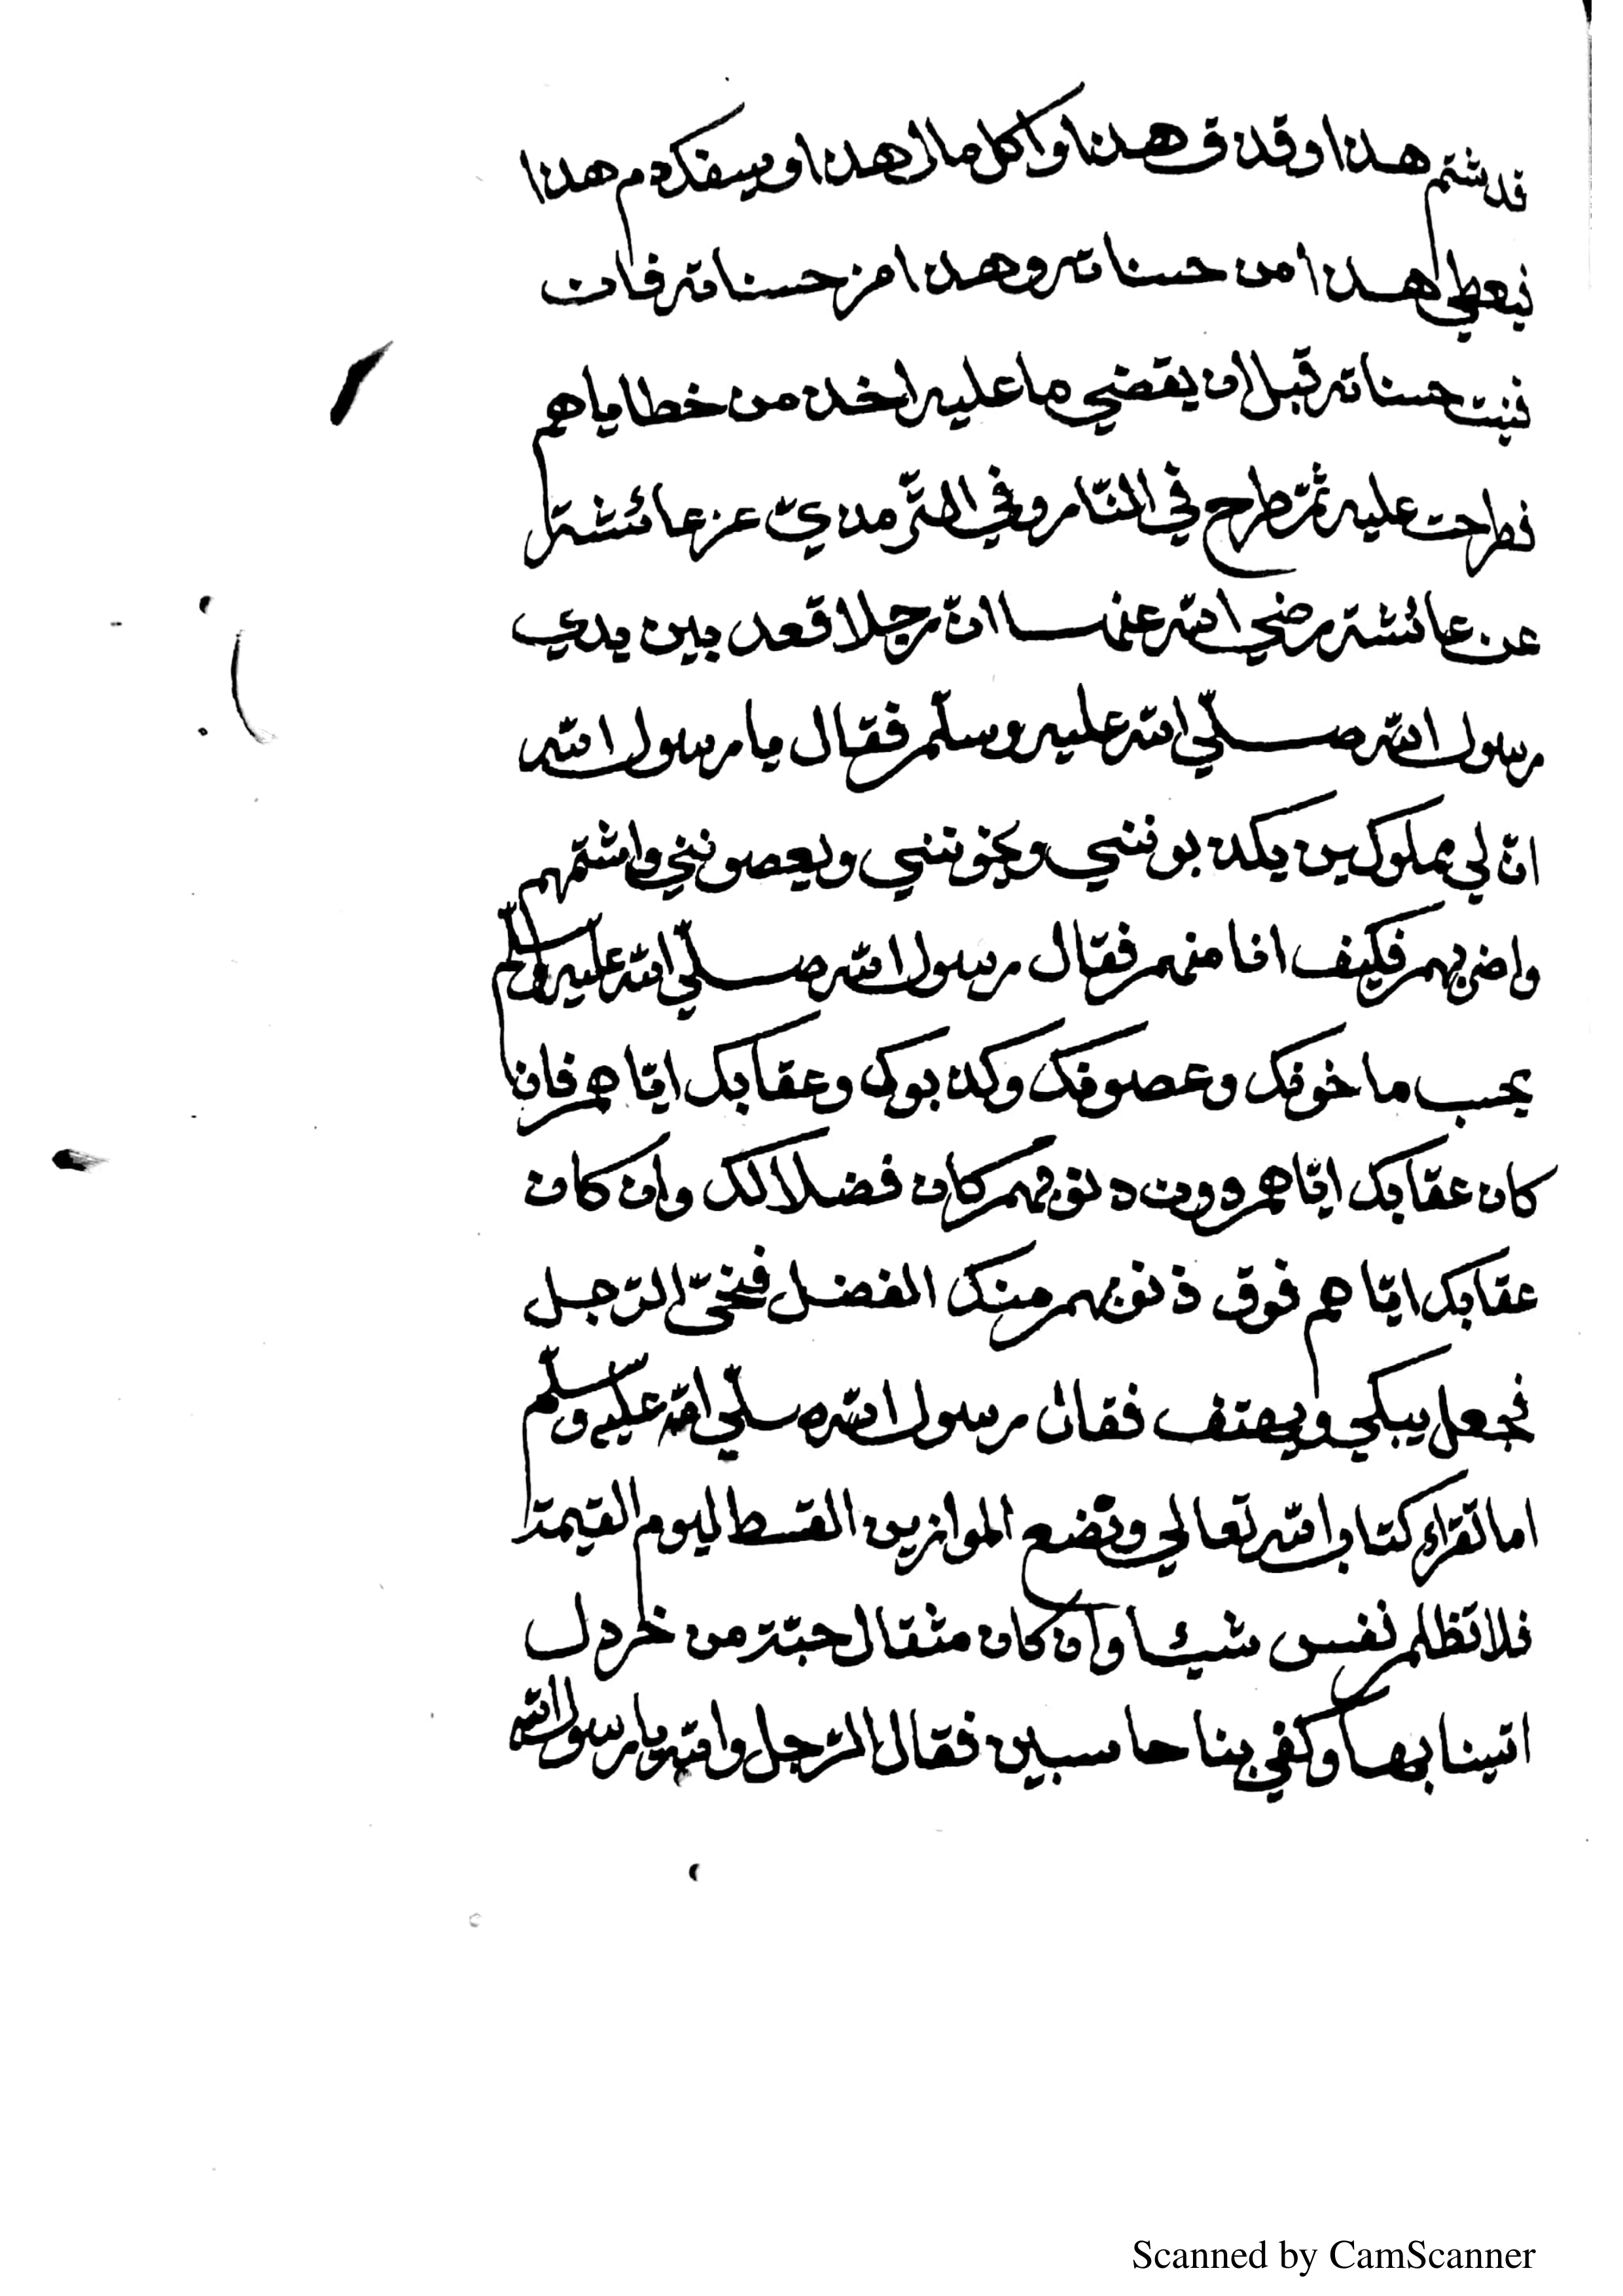 قد شتم هذا وقذف هذا واكل مال هذا وسفك دم هذا
فيعطي هذا من حسناته وهذا من حسناته فان
فنيت حسناته قبل ان يقضي ما عليه اخذ من خطاياهم
فطرحت عليه ثمّ طرح في النّار وفي التّرمذيّ عن عائشة
عن عائشة رضي الله عنها انّ رجلا قعد بين يدي
رسول الله صلّي الله عليه وسلّم فقال يا رسول الله
انّ لي مملوكين يكذبونني ويخونني ويعصونني واشتمهم
واضربهم فكيف انا منهم فقال رسول الله صلّي الله عليه وسلّم
يحسب ما خونك وعصونك وكذبوك وعقابك ايّاهم فان
كان عقابك ايّاهم دون ذنوبهم كان فضلا لك وان كان
عقابك ايّاهم فوق ذنوبهم منك الفضل فتنحّي الرّجل
فجعل يبكي ويهتف فقال رسول الله صلّي الله عليه وسلّم
اما تقراء كتاب الله تعالي ونضع الموازين القسط ليوم القيمة
فلا تظلم نفس شيئا وان كان مثقال حبّة من خردل
اتينا بها وكفي بنا حاسبين فقال الرّجل والله يا رسول الله
Scanned by CamScanner